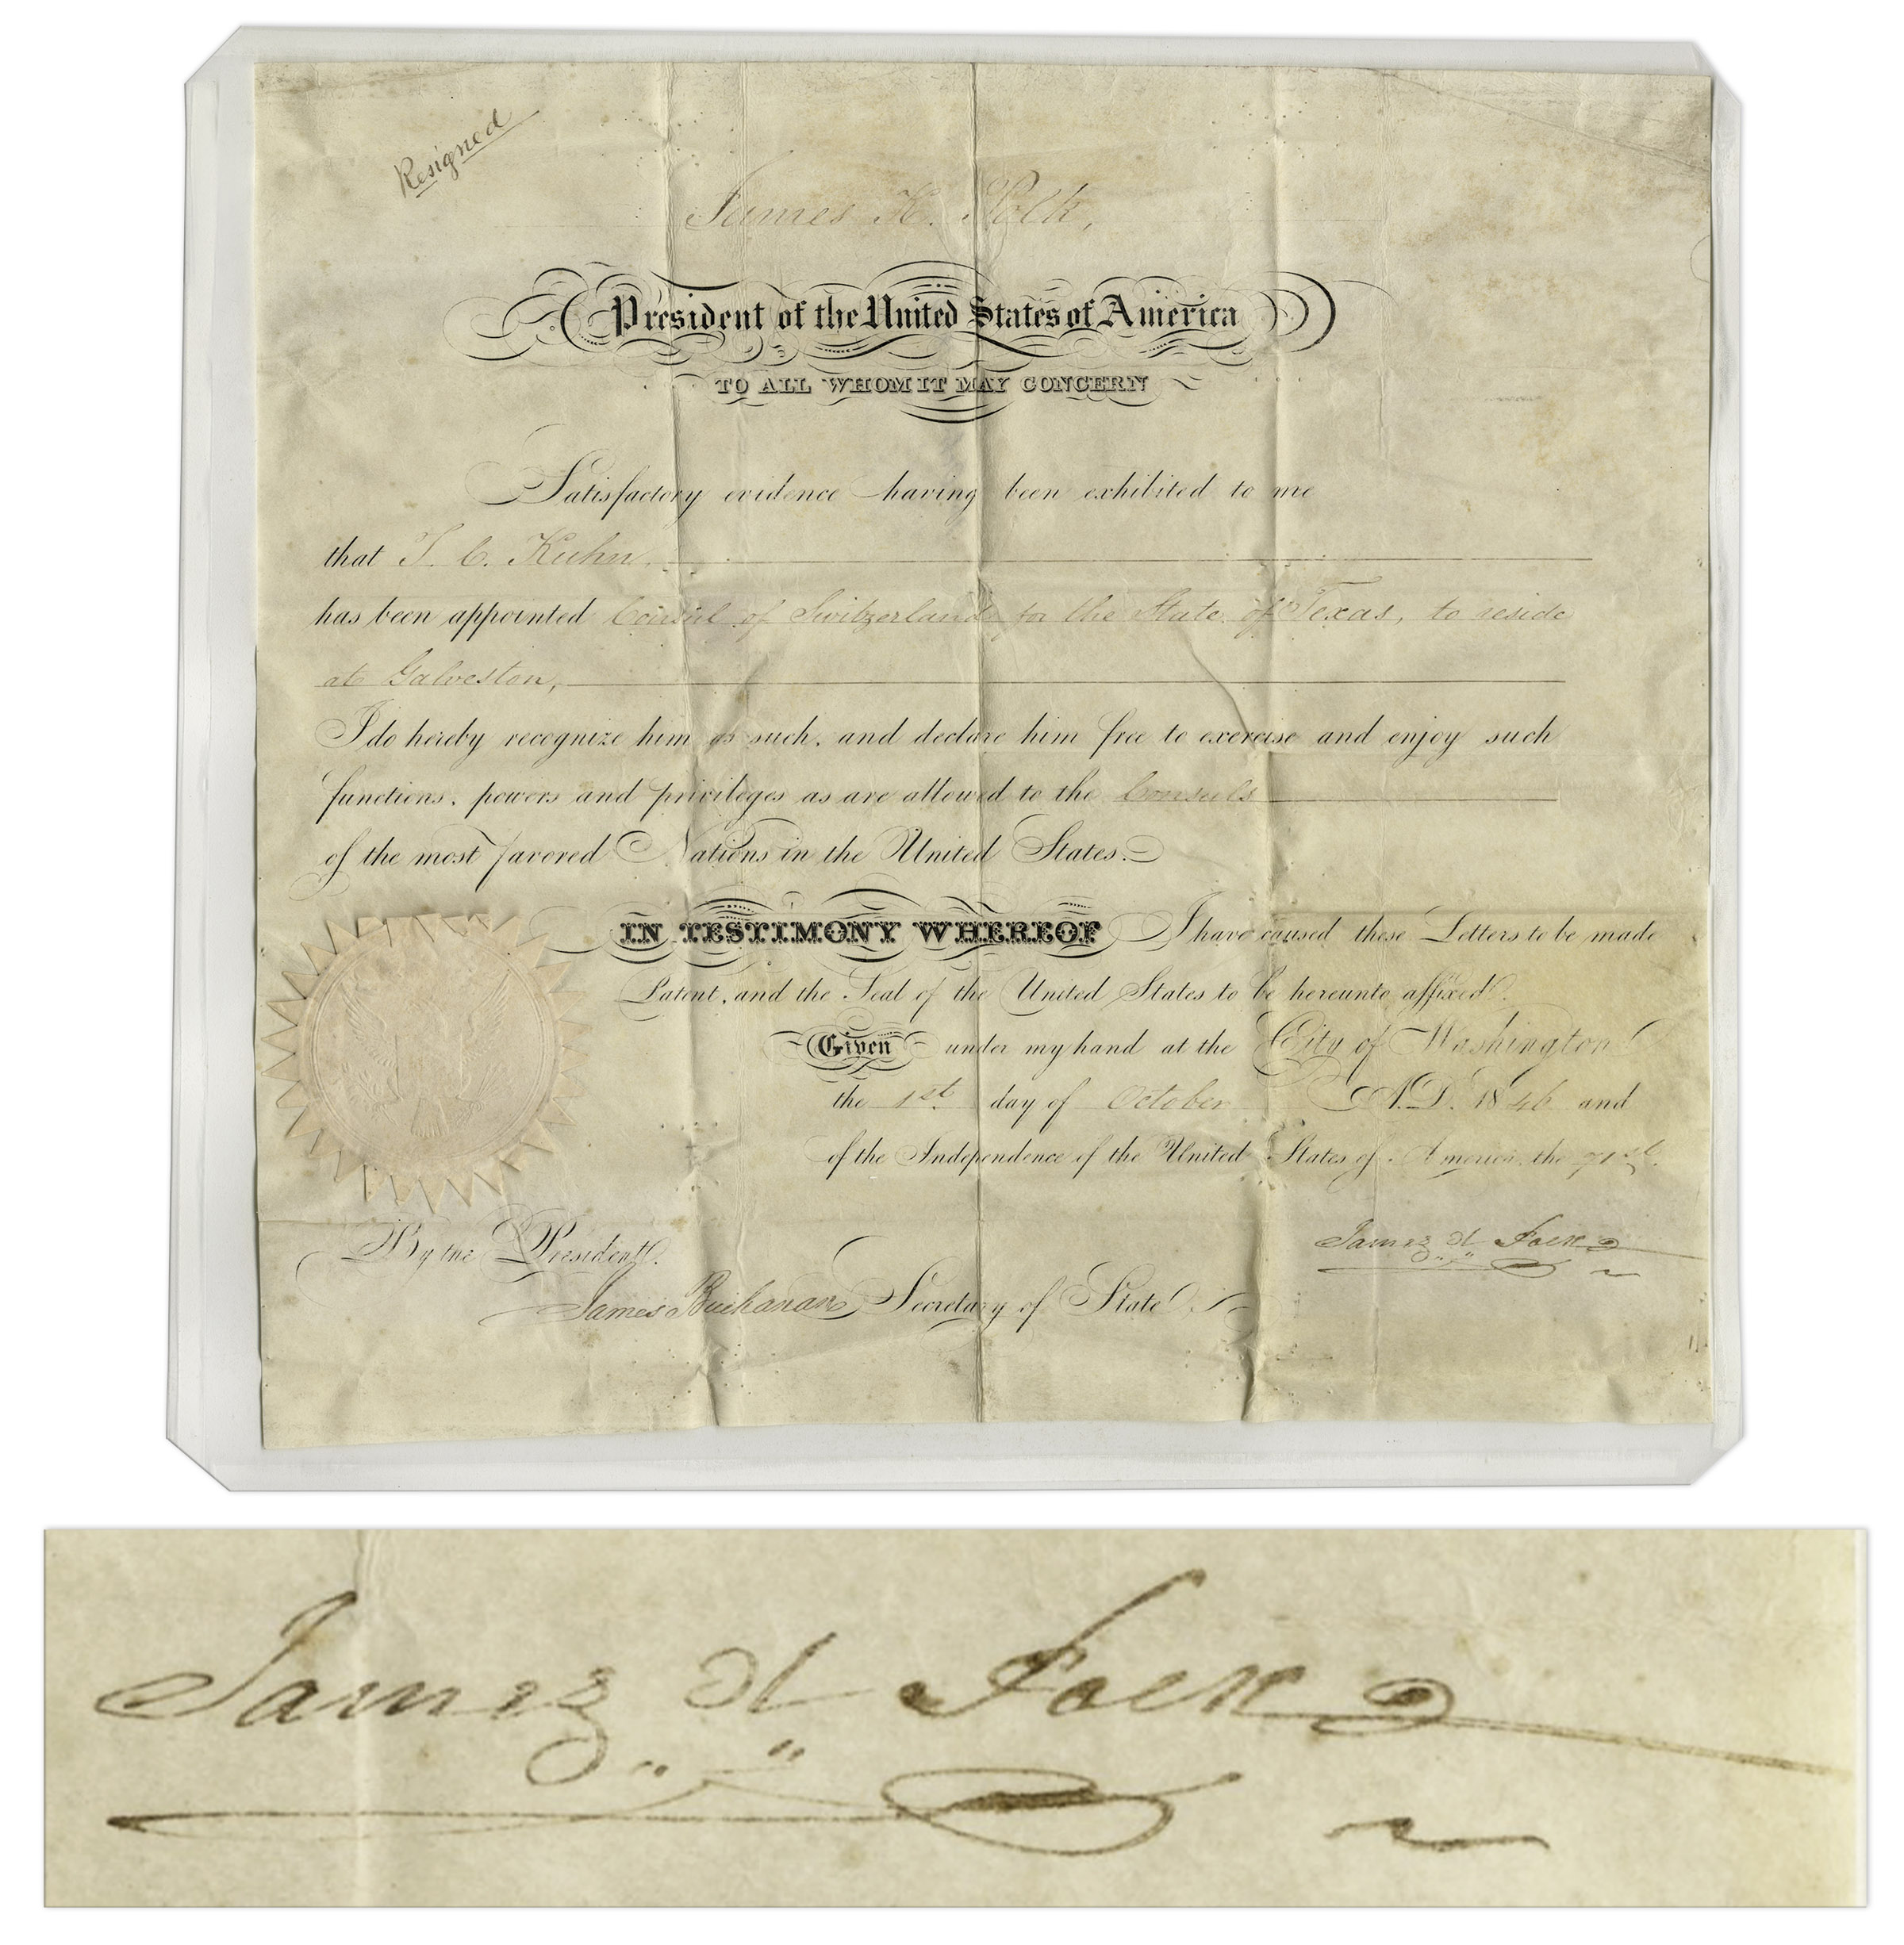 Resigned
James K. Polk,
President of the United States of America
TO ALL WHOM IT MAY CONCERN
Satisfactory evidence having been exhibited to me
that J. C. Kuhn,
has been appointed Consul of Switzerland for the State of Texas, to reside
at Galveston,
I do hereby recognize him as such, and declare him free to exercise and enjoy such
functions, powers and privileges as are allowed to the Consuls
of the most favored Nations in the United States.
IN TESTIMONY WHEREOF I have caused these Letters to be made
Patent, and the Seal of the United States to be hereunto affixed.
Given under my hand at the City of Washington
the 1st day of October A.D. 1846 and
of the Independence of the United States of America, the 71st.
James K Polk
By the President.
James Buchanan Secretary of State
James K Polk